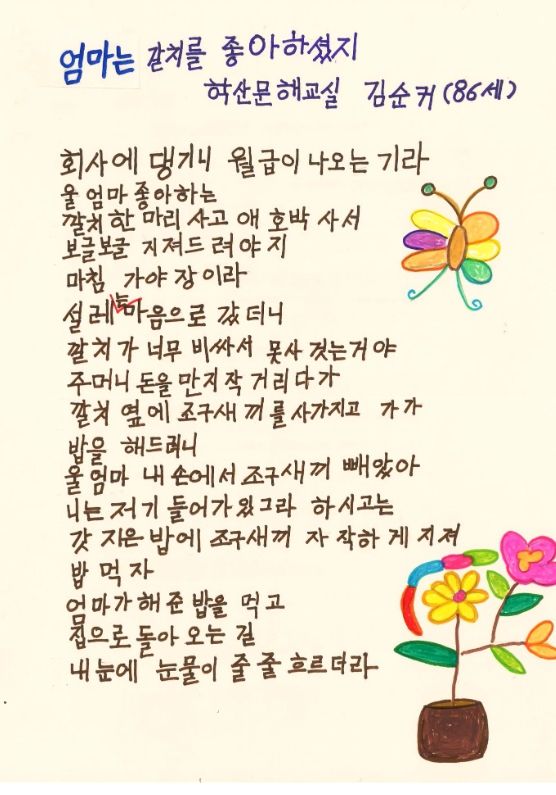 엄마는 갈치를 좋아하셨지
학산문해교실 김순커(86세)
회사에 댕기니 월급이 나오는 기라
울 엄마 좋아하는
깔치 한 마리 사고 애 호박 사서
보글보글 지져드려야지
마침 가야장이라
설레는 마음으로 갔더니
깔치가 너무 비싸서 못사 것는거야
주머니 돈을 만지작 거리다가
깔치 옆에 조구새끼를 사가지고 가가
밥을 해드려니
울엄마 내 손에서 조구새끼 빼앗아
니는 저기 들어가 있그라 하시고는
갓 지은 밥에 조구새끼 자작하게 지져
밥 먹자
엄마가 해준 밥을 먹고
집으로 돌아 오는 길
내 눈에 눈물이 줄 줄 흐르더라